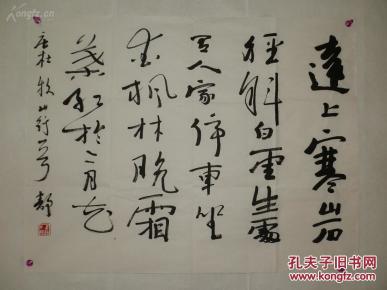 遠上寒山石
徑斜白雲生處
有人家停車坐
愛楓林晚霜
葉紅於二月花
唐杜牧山行一首 靜
孔夫子旧书网